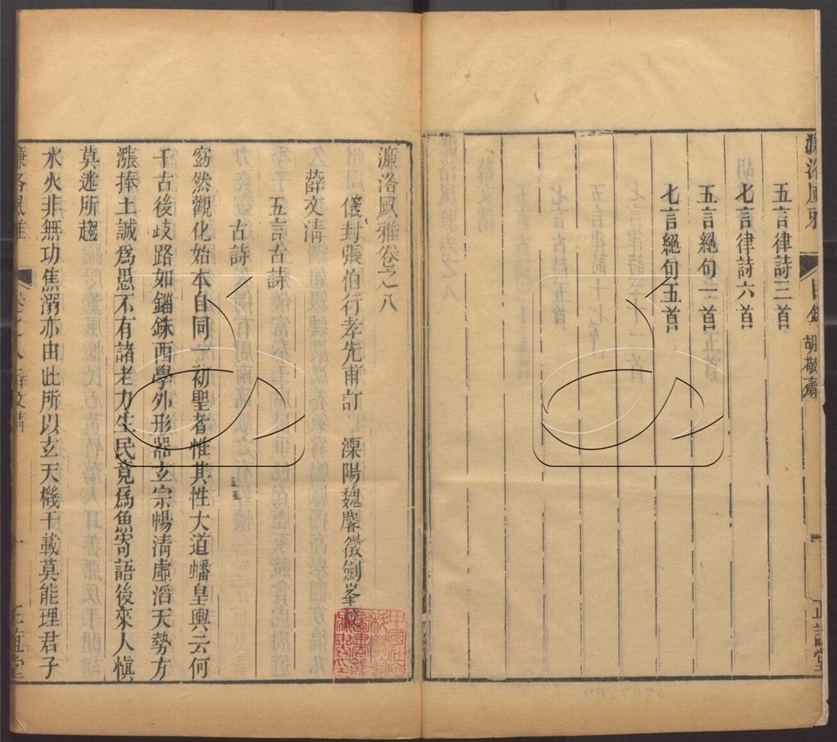 濂洛風雅
目錄
胡敬齋
正誼堂
五言律詩三首
七言律詩六首
五言絕句一首
七言絕句五首
濂洛風雅卷之八
儀封張伯行孝先甫訂 溧陽魏麐徵劍峯
薛文清
五言古詩
古詩
窈然觀化始本自同一初聖者惟其性大道蟠皇輿云何
千古後歧路如錙銖西學外形器玄宗暢清虛滔天勢方
漲捧土誠爲愚不有諸老力生民竟爲魚寄語後來人愼
莫迷所趨
水火非無功焦溺亦由此所以玄天機千載莫能理君子
濂洛風雅
卷之八
薛文清
一
正誼堂